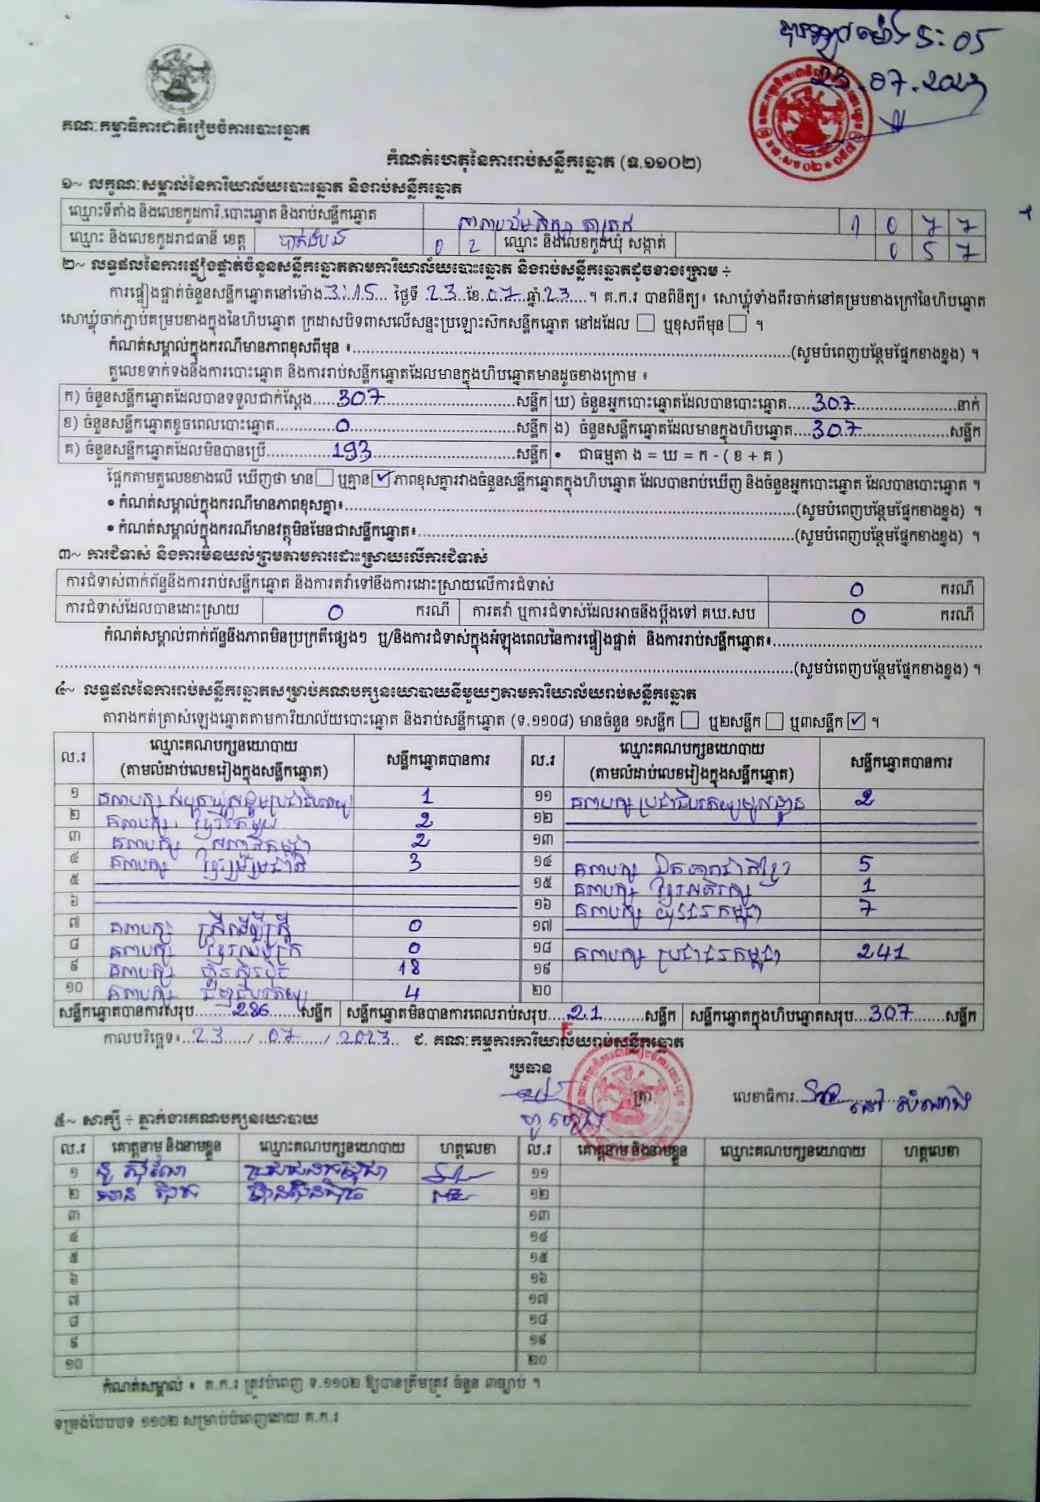 23.07.2023
គណៈកម្មាធិការជាតិរៀបចំការបោះឆ្នោត
កំណត់ហេតុនៃការរាប់សន្លឹកឆ្នោត (ទ.១១០២)
១~ លក្ខណៈសម្គាល់នៃការិយាល័យបោះឆ្នោត និងរាប់សន្លឹកឆ្នោត
ឈ្មោះទីតាំង និងលេខកូដការិ.បោះឆ្នោត និងរាប់សន្លឹកឆ្នោត 1 0 7 7
ឈ្មោះ និងលេខកូដរាជធានី ខេត្ត បាត់ដំបង 0 2 ឈ្មោះ និងលេខកូដឃុំ សង្កាត់ 0 5 7
២~ លទ្ធផលនៃការផ្ទៀងផ្ទាត់ចំនួនសន្លឹកឆ្នោតតាមការិយាល័យបោះឆ្នោត និងរាប់សន្លឹកឆ្នោតដូចខាងក្រោម ÷
ការផ្ទៀងផ្ទាត់ចំនួនសន្លឹកឆ្នោតនៅម៉ោង 3:15 ថ្ងៃទី 23 ខែ 07 ឆ្នាំ 23 ។ គ.ក.រ បានពិនិត្យ៖ សោឃ្លុំទាំងពីរចាក់នៅគម្របខាងក្រៅនៃហិបឆ្នោត
សោឃ្លុំចាក់ភ្ជាប់គម្របខាងក្នុងនៃហិបឆ្នោត ក្រដាសបិទពាសលើសន្ទះប្រឡោះសិកសន្លឹកឆ្នោត នៅដដែល ☐ ឬខុសពីមុន ☐ ។
កំណត់សម្គាល់ក្នុងករណីមានភាពខុសពីមុន ៖ (សូមបំពេញបន្ថែមផ្នែកខាងខ្នង) ។
តួលេខទាក់ទងនឹងការបោះឆ្នោត និងការរាប់សន្លឹកឆ្នោតដែលមានក្នុងហិបឆ្នោតមានដូចខាងក្រោម ៖
ក) ចំនួនសន្លឹកឆ្នោតដែលបានទទួលជាក់ស្តែង 307 សន្លឹក ឃ) ចំនួនអ្នកបោះឆ្នោតដែលបានបោះឆ្នោត 307 នាក់
ខ) ចំនួនសន្លឹកឆ្នោតខូចពេលបោះឆ្នោត 0 សន្លឹក ង) ចំនួនសន្លឹកឆ្នោតដែលមានក្នុងហិបឆ្នោត 307 សន្លឹក
គ) ចំនួនសន្លឹកឆ្នោតដែលមិនបានប្រើ 193 សន្លឹក • ជាធម្មតា ង = ឃ = ក - ( ខ + គ )
ផ្អែកតាមតួលេខខាងលើ ឃើញថា មាន ☐ ឬគ្មាន ☑ ភាពខុសគ្នារវាងចំនួនសន្លឹកឆ្នោតក្នុងហិបឆ្នោត ដែលបានរាប់ឃើញ និងចំនួនអ្នកបោះឆ្នោត ដែលបានបោះឆ្នោត ។
• កំណត់សម្គាល់ក្នុងករណីមានភាពខុសគ្នា៖ (សូមបំពេញបន្ថែមផ្នែកខាងខ្នង) ។
• កំណត់សម្គាល់ក្នុងករណីមានវត្ថុមិនមែនជាសន្លឹកឆ្នោត៖ (សូមបំពេញបន្ថែមផ្នែកខាងខ្នង) ។
៣~ ការជំទាស់ និងការមិនយល់ព្រមតាមការដោះស្រាយលើការជំទាស់
ការជំទាស់ពាក់ព័ន្ធនឹងការរាប់សន្លឹកឆ្នោត និងការតវ៉ាទៅនឹងការដោះស្រាយលើការជំទាស់ 0 ករណី
ការជំទាស់ដែលបានដោះស្រាយ 0 ករណី ការតវ៉ា ឬការជំទាស់ដែលអាចនឹងប្តឹងទៅ គឃ.សប 0 ករណី
កំណត់សម្គាល់ពាក់ព័ន្ធនឹងភាពមិនប្រក្រតីផ្សេងៗ ឬ/និងការជំទាស់ក្នុងអំឡុងពេលនៃការផ្ទៀងផ្ទាត់ និងការរាប់សន្លឹកឆ្នោត៖
(សូមបំពេញបន្ថែមផ្នែកខាងខ្នង) ។
៤~ លទ្ធផលនៃការរាប់សន្លឹកឆ្នោតសម្រាប់គណបក្សនយោបាយនីមួយៗតាមការិយាល័យរាប់សន្លឹកឆ្នោត
តារាងកត់ត្រាសំឡេងឆ្នោតតាមការិយាល័យបោះឆ្នោត និងរាប់សន្លឹកឆ្នោត (ទ.១១០៨) មានចំនួន ១សន្លឹក ☐ ឬ២សន្លឹក ☐ ឬ៣សន្លឹក ☑ ។
ល.រ ឈ្មោះគណបក្សនយោបាយ (តាមលំដាប់លេខរៀងក្នុងសន្លឹកឆ្នោត) សន្លឹកឆ្នោតបានការ ល.រ ឈ្មោះគណបក្សនយោបាយ (តាមលំដាប់លេខរៀងក្នុងសន្លឹកឆ្នោត) សន្លឹកឆ្នោតបានការ
១ គណបក្ស 1 ១១ គណបក្ស ប្រជាធិបតេយ្យមូលដ្ឋាន 2
២ គណបក្ស 2 ១២
៣ គណបក្ស 2 ១៣
៤ គណបក្ស ខ្មែររួបរួមជាតិ 3 ១៤ គណបក្ស ឯកភាពជាតិខ្មែរ 5
៥ ១៥ គណបក្ស 1
៦ ១៦ គណបក្ស យុវជនកម្ពុជា 7
៧ គណបក្ស ស្ត្រីដើម្បីស្ត្រី 0 ១៧
៨ គណបក្ស 0 ១៨ គណបក្ស ប្រជាជនកម្ពុជា 241
៩ គណបក្ស ហ៊្វុនស៊ិនប៉ិច 18 ១៩
១០ គណបក្ស 4 ២០
សន្លឹកឆ្នោតបានការសរុប 286 សន្លឹក សន្លឹកឆ្នោតមិនបានការពេលរាប់សរុប 21 សន្លឹក សន្លឹកឆ្នោតក្នុងហិបឆ្នោតសរុប 307 សន្លឹក
កាលបរិច្ឆេទ៖ 23 / 07 / 2023 ជ. គណៈកម្មការការិយាល័យរាប់សន្លឹកឆ្នោត
ប្រធាន
ត្រា លេខាធិការ
៥~ សាក្សី ÷ ភ្នាក់ងារគណបក្សនយោបាយ
ល.រ គោត្តនាម និងនាមខ្លួន ឈ្មោះគណបក្សនយោបាយ ហត្ថលេខា ល.រ គោត្តនាម និងនាមខ្លួន ឈ្មោះគណបក្សនយោបាយ ហត្ថលេខា
១ ប្រជាជនកម្ពុជា ១១
២ ហ៊្វុនស៊ិនប៉ិច ១២
៣ ១៣
៤ ១៤
៥ ១៥
៦ ១៦
៧ ១៧
៨ ១៨
៩ ១៩
១០ ២០
កំណត់សម្គាល់ ៖ គ.ក.រ ត្រូវបំពេញ ទ.១១០២ ឱ្យបានត្រឹមត្រូវ ចំនួន ៣ច្បាប់ ។
ទម្រង់បែបបទ ១១០២ សម្រាប់បំពេញដោយ គ.ក.រ